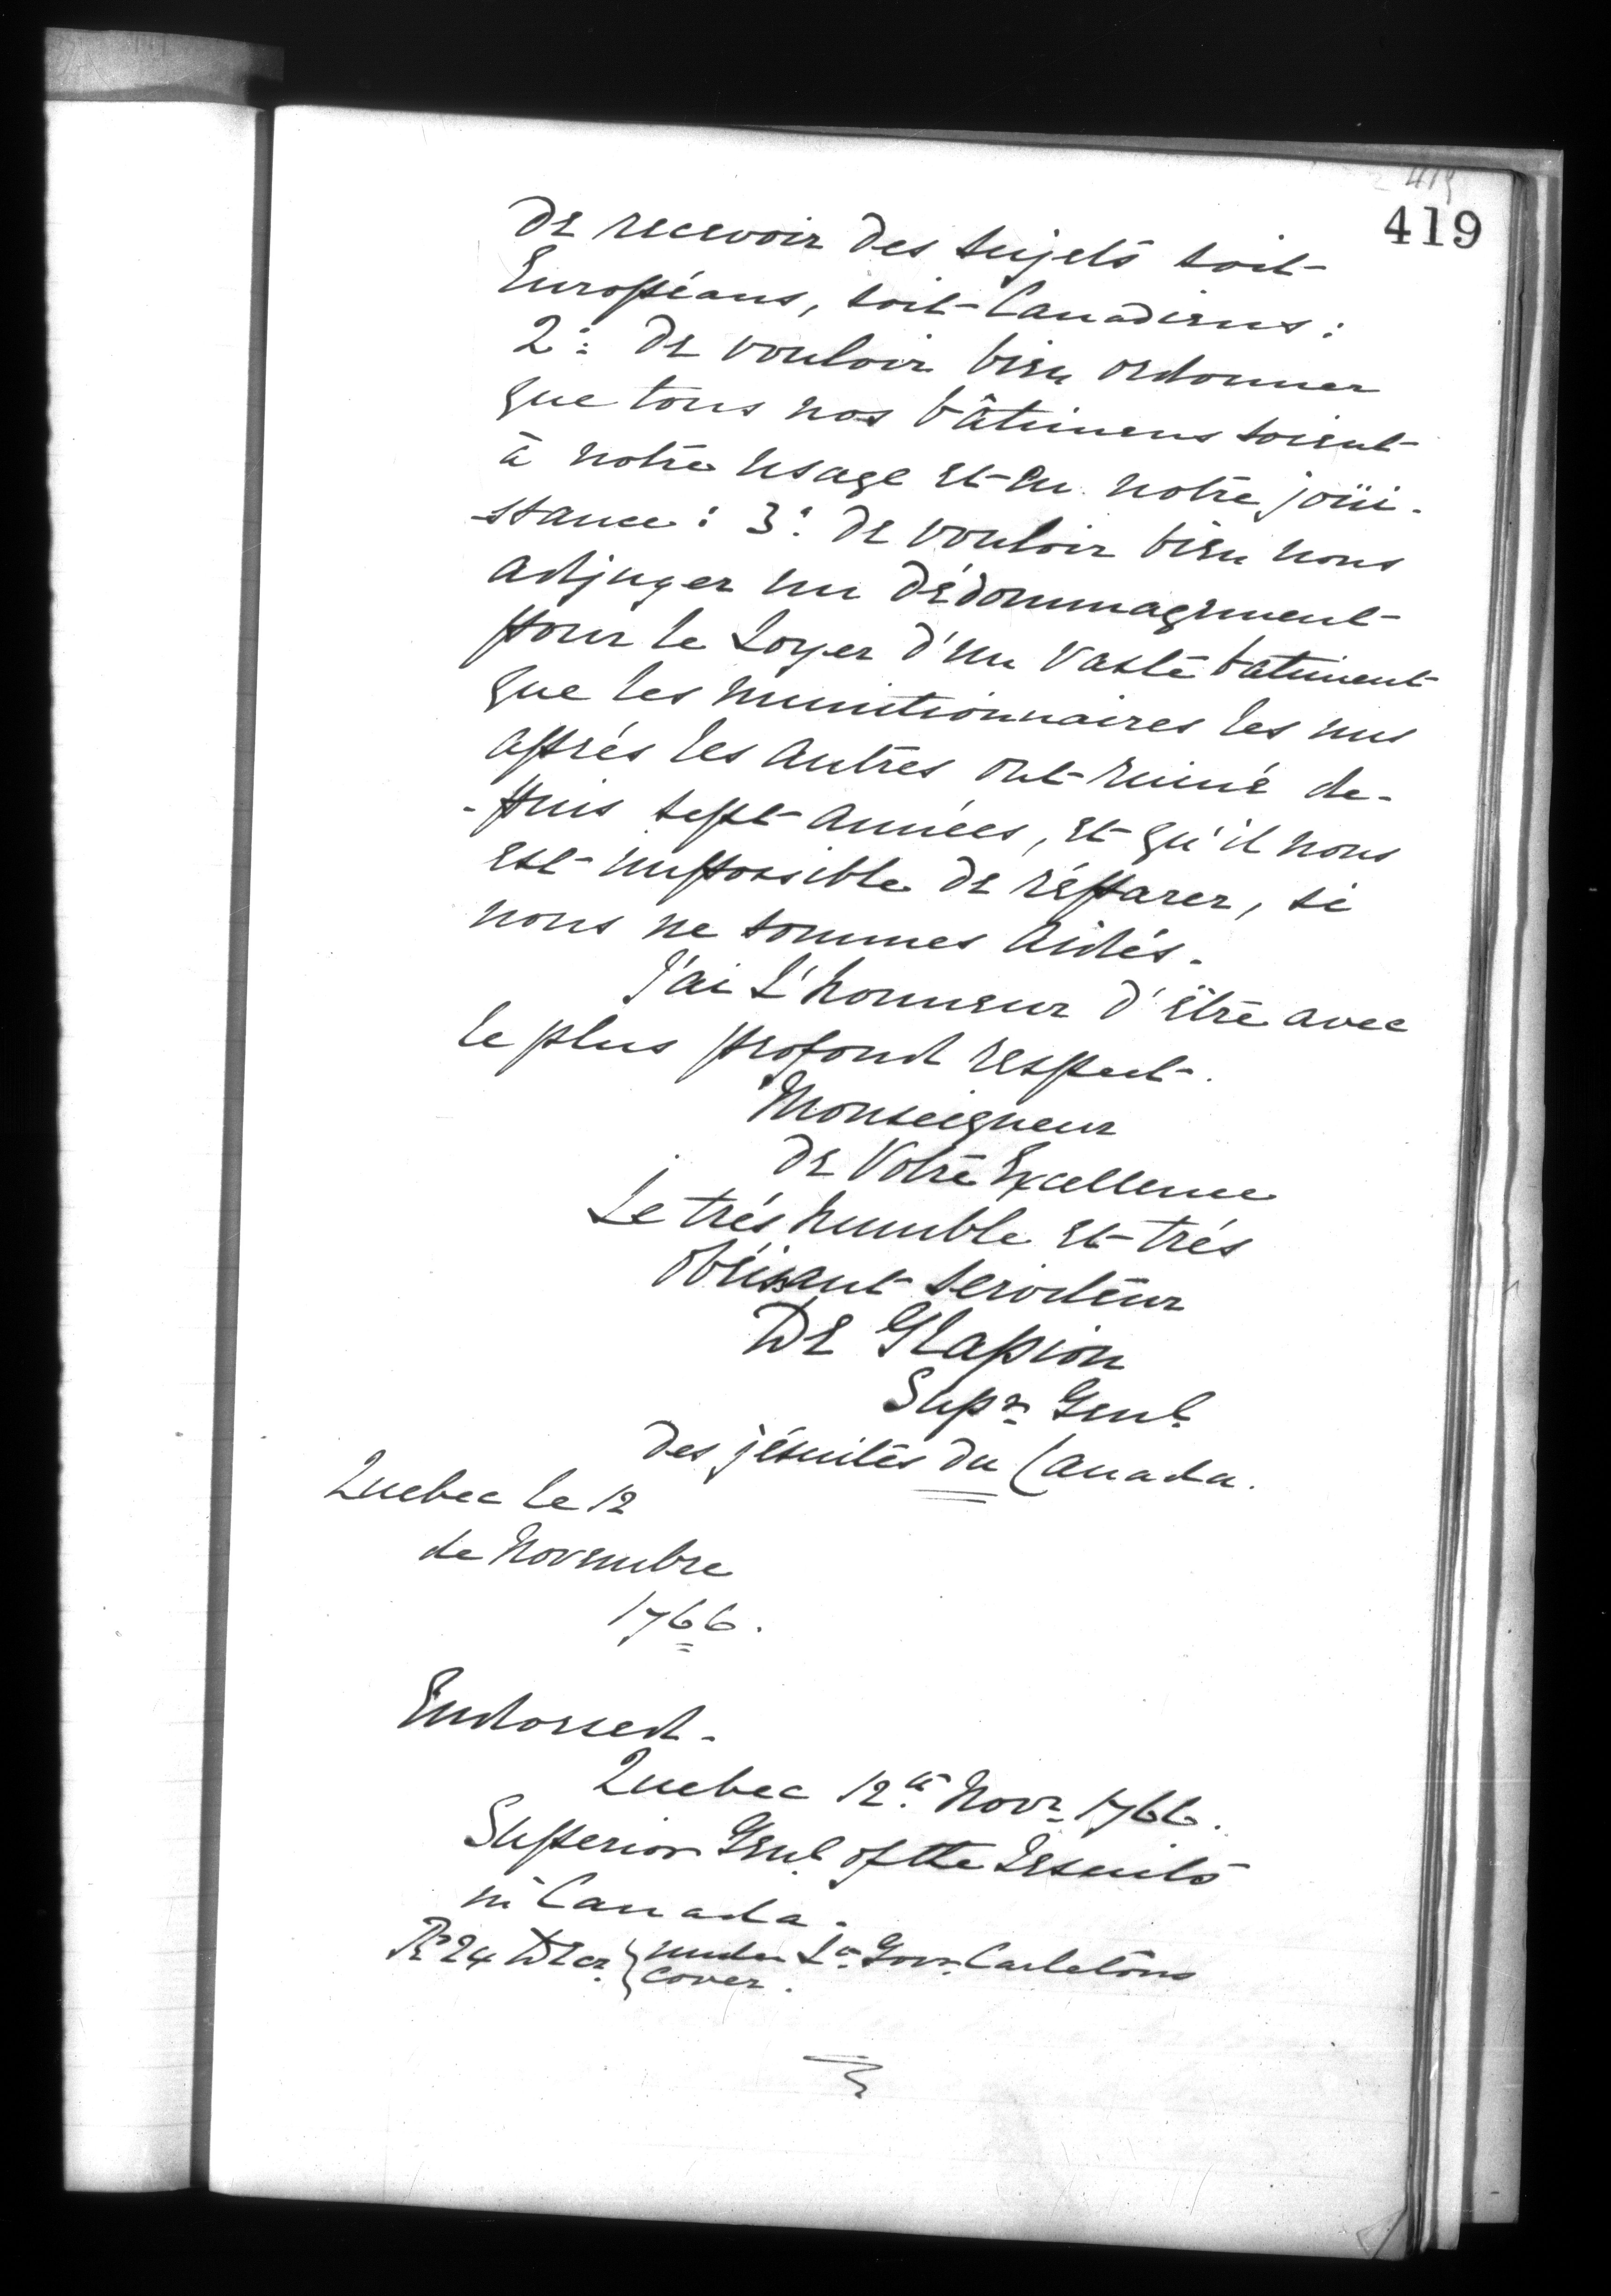 419
419
de recevoir des sujets soit
Européans, soit Canadiens :
2°: de vouloir bien ordonner
que tous nos bâtimens soient
à notre usage et en notre joüi-
-ssance : 3°: de vouloir bien nous
adjuger un dédommagement
pour le Loyer d'un vaste batiment
que les munitionnaires les uns
aprés les autres ont ruiné de-
-puis sept années, et qu'il nous
est impossible de réparer, si
nous ne sommes aidés.
J'ai L'honneur d'être avec
le plus profond respect.
Monseigneur
de Votre Excellence
Le trés humble et trés
obéissant serviteur
De Glapion
Supr Genl
des jésuites du Canada.
Quebec le 12
de Novembre
1766.
Endorsed.
Quebec 12th Novr 1766.
Superior Genl of the Jesuits
in Canada.
Re 24 Decr } under Lt Govr Carletons
cover.